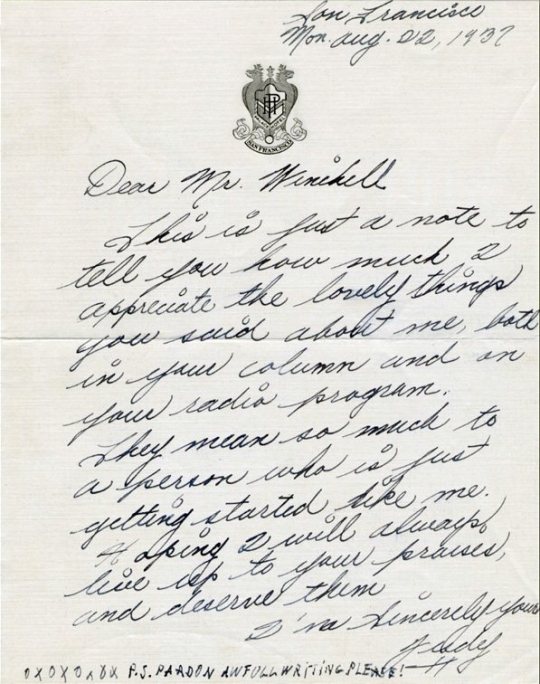 San Francisco
Mon. Aug. 22, 1937
SAN FRANCISCO
Dear Mr. Winchell
This is just a note to
tell you how much I
appreciate the lovely things
you said about me, both
in your column and on
your radio program.
They mean so much to
a person who is just
getting started like me.
Hoping I will always
live up to your praises,
and deserve them
I'm Sincerely yours
Judy
OXOXOXOX P.S. PARDON AWFULL WRITING PLEASE!